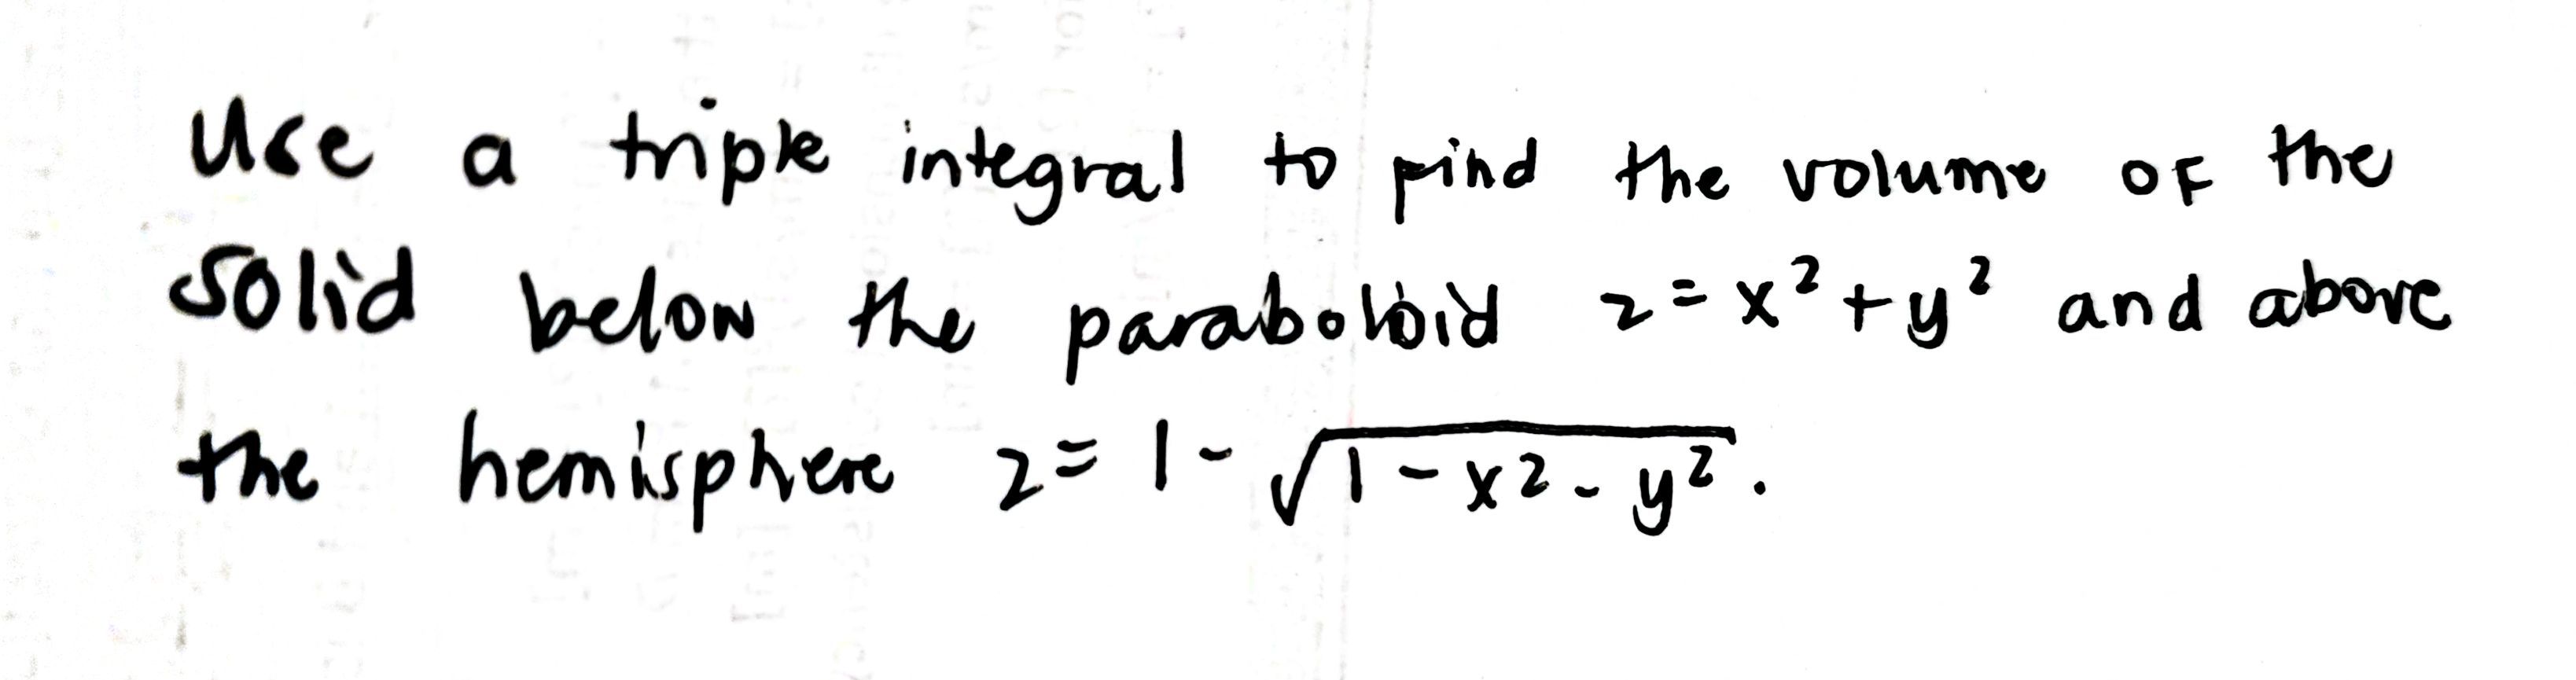 Use a triple integral to find the volume of the
solid below the paraboloid z = x² + y² and above
the hemisphere z = 1 - √(1 - x² - y²).